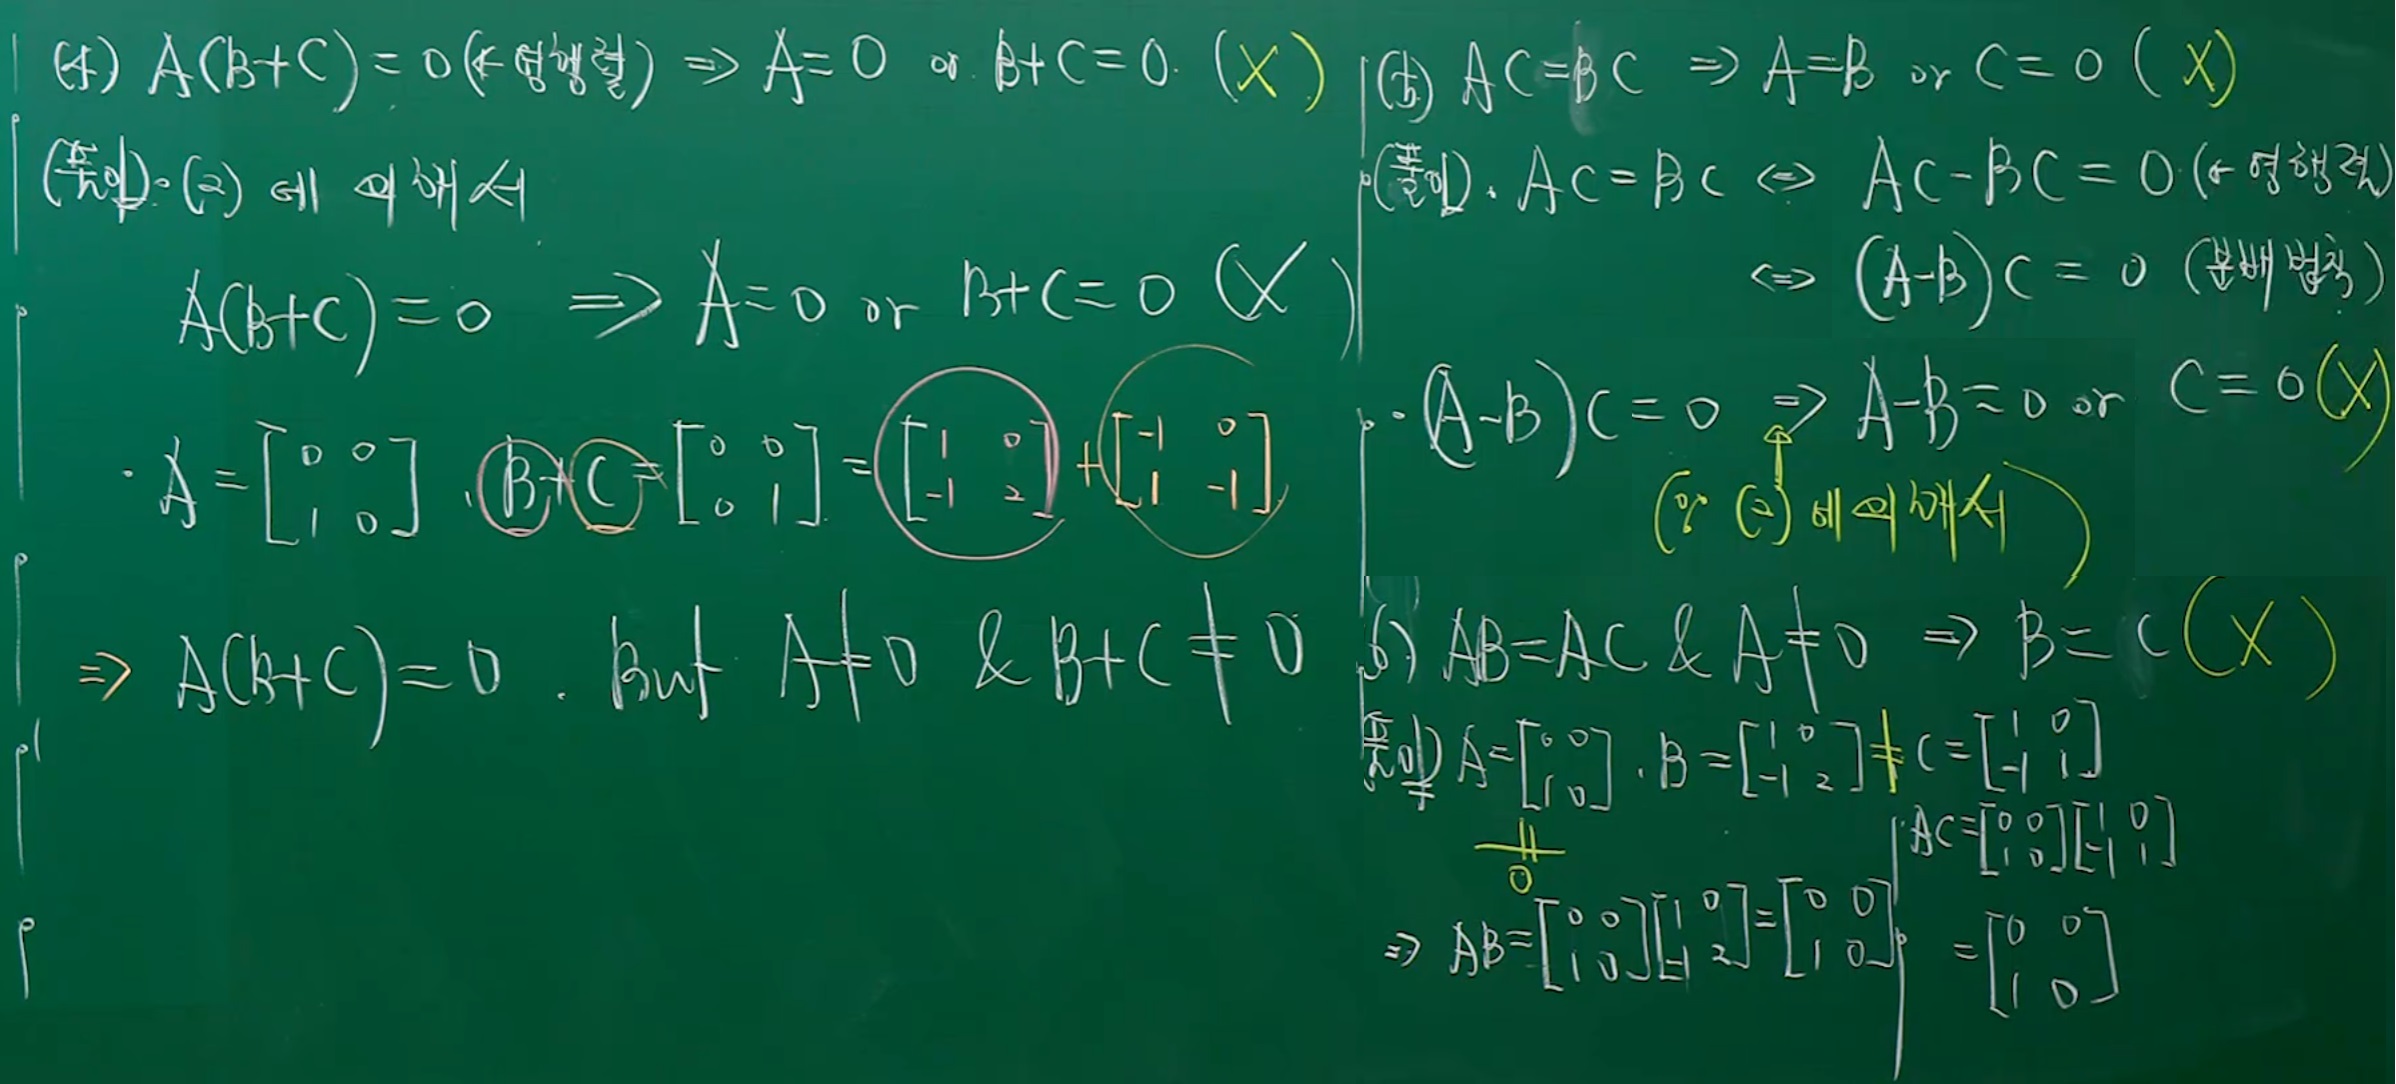 (4) A(B+C) = 0 (← 영행렬) ⇒ A = 0 or B+C = 0. (X)
(풀이)·(2)에 의해서
A(B+C) = 0 ⇒ A = 0 or B+C = 0 (X)
· A = [0 0; 1 0] . B+C = [0 0; 0 1] = [1 0; -1 2] + [-1 0; 1 -1]
⇒ A(B+C) = 0 . But A ≠ 0 & B+C ≠ 0
(5) AC = BC ⇒ A = B or C = 0 (X)
(풀이). AC = BC ⇔ AC - BC = 0 (← 영행렬)
⇔ (A-B)C = 0 (분배법칙)
· (A-B)C = 0 ⇒ A-B = 0 or C = 0 (X)
(∵ (2)에 의해서)
6) AB = AC & A ≠ 0 ⇒ B = C (X)
풀이) A = [0 0; 1 0] . B = [1 0; -1 2] ≠ C = [1 0; -1 1]
≠
0
⇒ AB = [0 0; 1 0][1 0; -1 2] = [0 0; 1 0]
AC = [0 0; 1 0][1 0; -1 1]
= [0 0; 1 0]